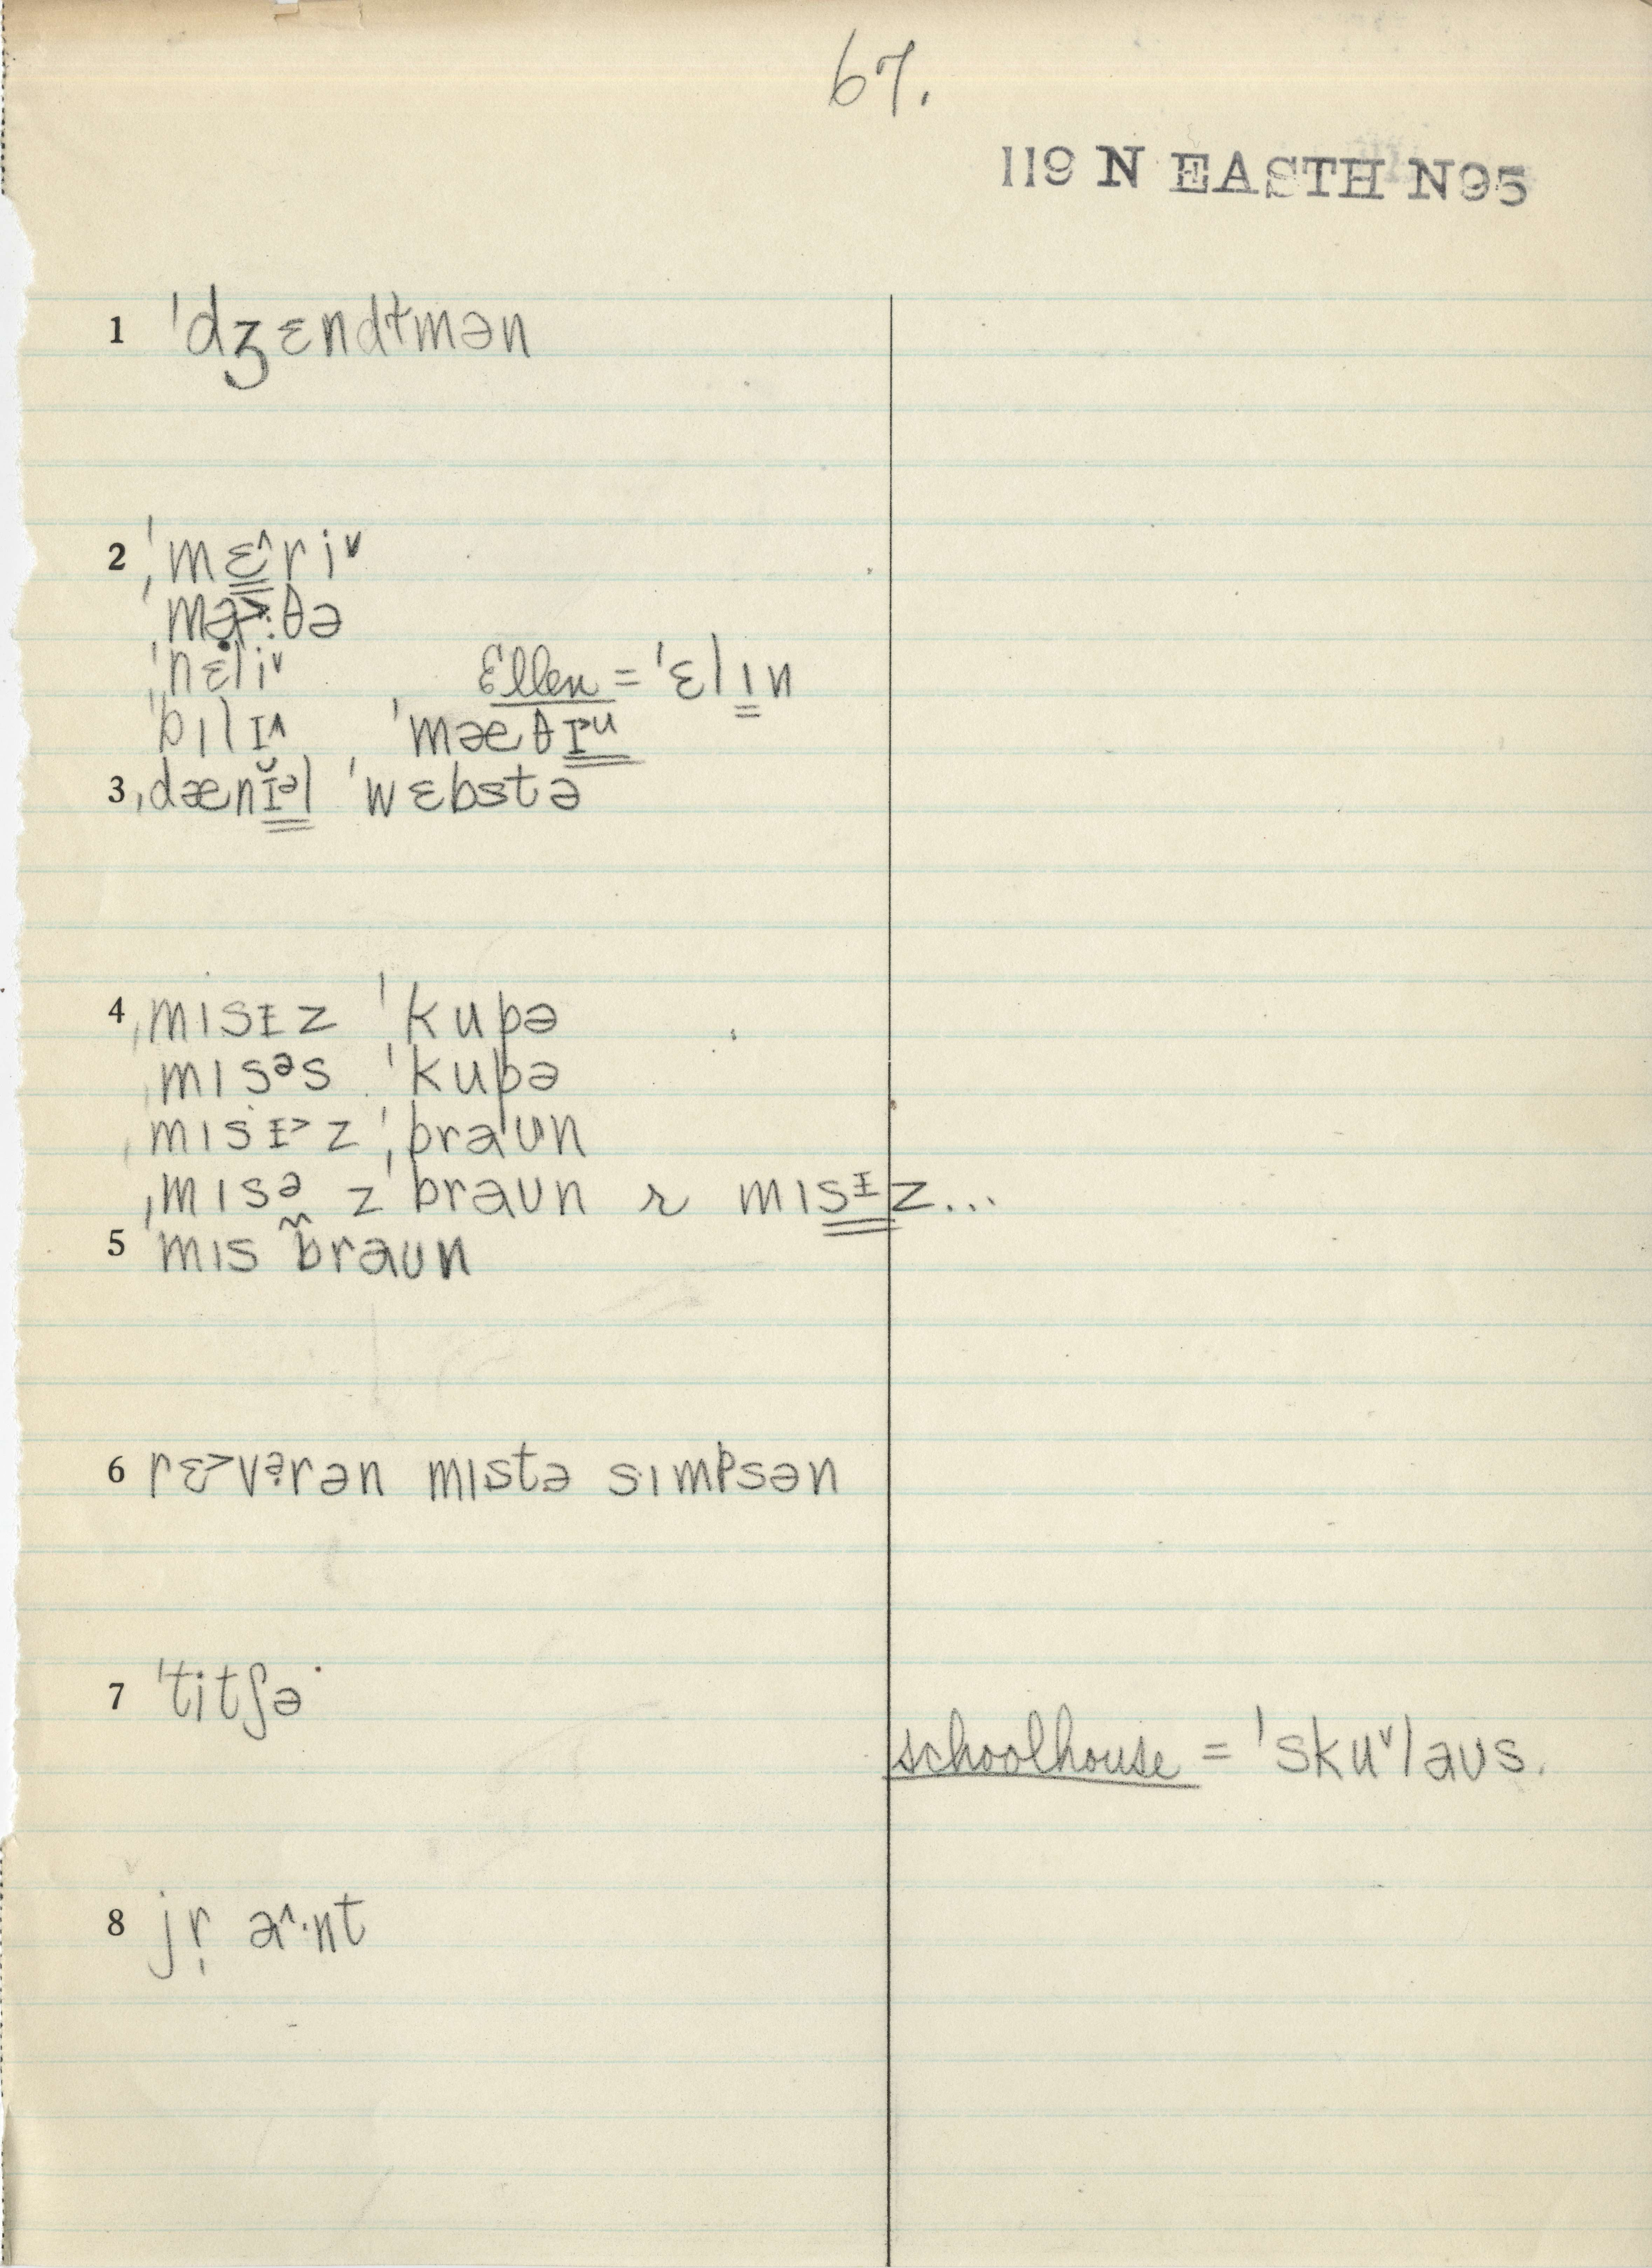 67.
119 N EASTH N95
1 ˈdʒɛndɫmən
2 ˈmɛ^riᵛ
ˈmə˃:θə
ˈnɛliᵛ Ellen = ˈɛlɪn
ˈbɪlɪ^ ˈmæθɪu
3 ˌdænɪ̆ᵊl ˈwɛbstə
4 ˌmɪsɪz ˈkupə
ˌmɪsᵊs ˈkupə
ˌmɪsɪ˃z ˈbraʊn
ˌmɪsə zˈbraʊn r mɪsɪz...
5 ˈmɪs braʊn
6 rɛ˃vərən mɪstə sɪmpsən
7 ˈtitʃə
schoolhouse = ˈskuᵛlaʊs.
8 jr̩ a^·nt